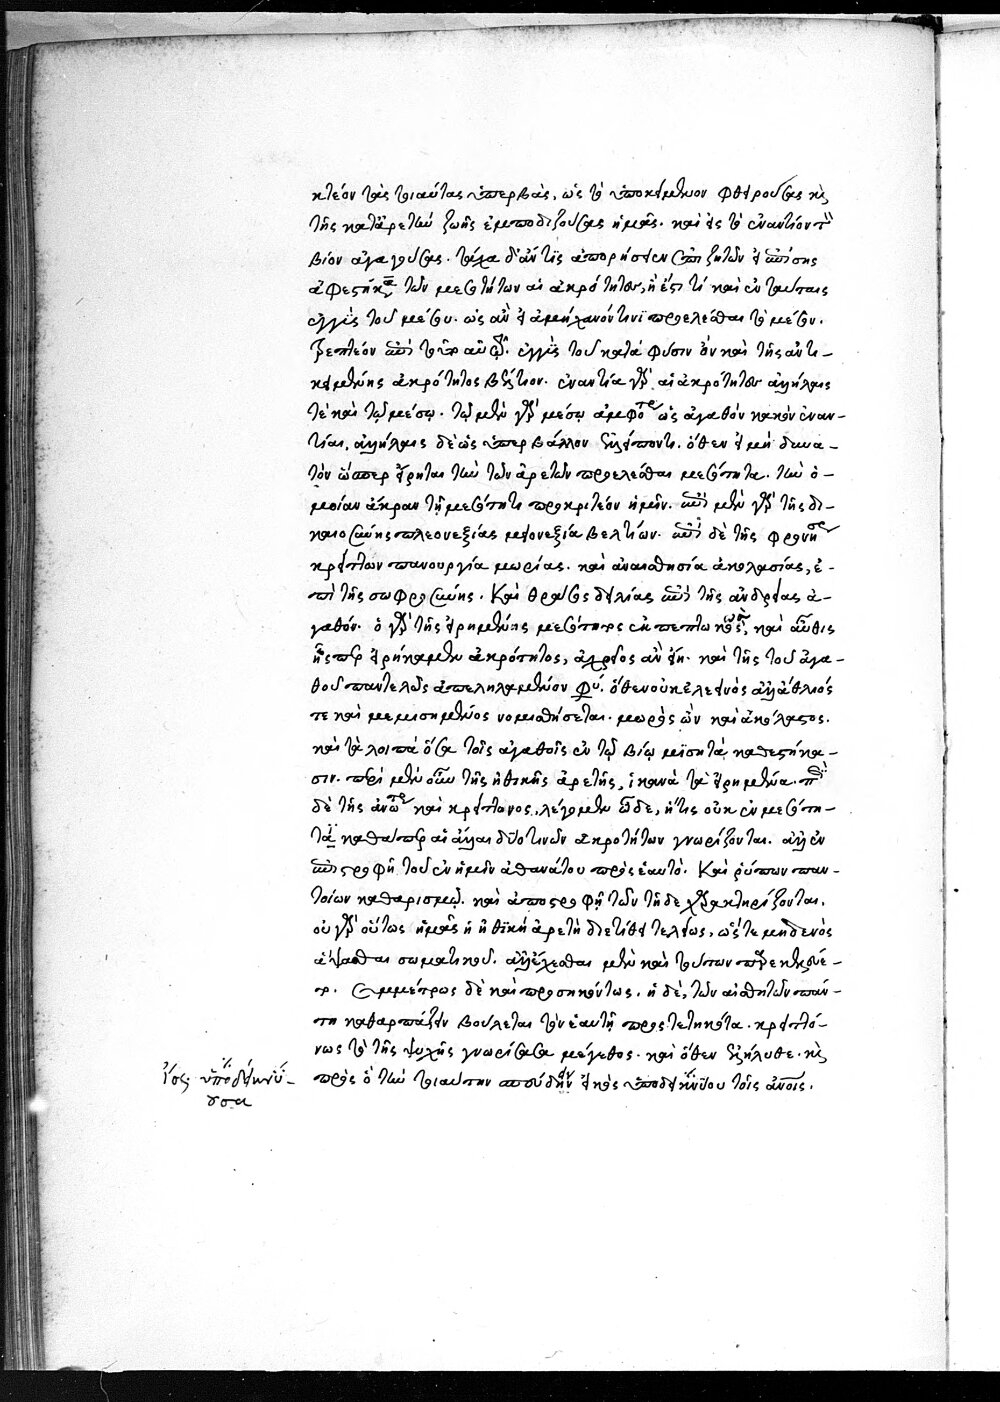 κτέον τὰς τοιαύτας ὑπερβὰς, ὡς τὸ ὑποκείμενον φθειρούσας καὶ
τῆς κατ' ἀρετὴν ζωῆς ἐμποδιζούσας ἡμᾶς. καὶ εἰς τὸ ἐναντίον
βίον ἀγαγούσας. τάχα δ' ἄν τις ἀπορήσειεν ζητῶν εἰ ἐπίσης
ἀφεστήκασι τῶν μεσοτήτων αἱ ἀκρότητες, ἢ ἔστι τί καὶ ἐν ταύταις
ἐγγὺς τοῦ μέσου. ὡς ἂν εἰ ἀμήχανόν τινι προελέσθαι τὸ μέσον.
τρεπτέον ἐπὶ τὸ ἐγγὺς τοῦ κατὰ φύσιν ὂν καὶ τῆς ἀντι-
κειμένης ἀκρότητος βέλτιον. ἐναντία γὰρ αἱ ἀκρότητες ἀλλήλαις
τὲ καὶ τῷ μέσῳ. τῷ μὲν γὰρ μέσῳ ἀμφότεραι ὡς ἀγαθὸν κακὸν ἐναν-
τίαι, ἀλλήλαις δὲ ὡς ὑπερβάλλον ἐλλείποντι. ὅθεν εἰ μὴ δυνα-
τὸν ὥσπερ εἴρηται τὴν τῶν ἀρετῶν προελέσθαι μεσότητα. τὴν ὁ-
μοίαν ἄκραν τῇ μεσότητι προκριτέον ἡμῖν. ἐπὶ μὲν γὰρ τῆς δι-
καιοσύνης πλεονεξίας μειονεξία βελτίων. ἐπὶ δὲ τῆς φρονήσεως
κρεῖττον πανουργία μωρίας. καὶ ἀναισθησία ἀκολασίας, ἐ-
πὶ τῆς σωφροσύνης. Καὶ θράσος δειλίας ἐπὶ τῆς ἀνδρείας ἀ-
γαθόν. ὁ γὰρ τῆς εἰρημένης μεσότητος ἐκπεπτωκὼς, καὶ αὖθις
ἧσπερ εἰρήκαμεν ἀκρότητος, ἀχρεῖος ἂν εἴη. καὶ τῆς τοῦ ἀγα-
θοῦ παντελῶς ἀπεληλαμένον. ὅθεν οὐκ ἐλεεινὸς ἀλλ' ἄθλιός
τε καὶ μεμισημένος νομισθήσεται. μωρὸς ὢν καὶ ἀκόλαστος.
καὶ τὰ λοιπὰ ὅσα τοῖς ἀγαθοῖς ἐν τῷ βίῳ μισητὰ καθεστήκα-
σιν. περὶ μὲν οὖν τῆς ἠθικῆς ἀρετῆς, ἱκανὰ τὰ εἰρημένα. περὶ
δὲ τῆς ἀνωτέρω καὶ κρείττονος, λέγομεν ὧδε, ἥτις οὐκ ἐν μεσότη-
τι καθάπερ αἱ ἄλλαι δύο τινῶν ἀκροτήτων γνωρίζονται. ἀλλ' ἐν
ἐπιστροφῇ τοῦ ἐν ἡμῖν ἀθανάτου πρὸς ἑαυτό. Καὶ ῥύπων παν-
τοίων καθαρισμῷ. καὶ ἀποστροφῇ τῶν τῇδε χαρακτηρίζονται.
οὐ γὰρ οὕτως ἡμᾶς ἡ ἠθικὴ ἀρετὴ διετίθει τελείως, ὥστε μηδενὸς
ἅψασθαι σωματικοῦ. ἀλλ' ἔχεσθαι μὲν καὶ τούτων
Συμμέτρως δὲ καὶ προσηκόντως. ἡ δὲ, τῶν αἰσθητῶν πάν-
τῃ καθαρπάζειν βούλεται τὸν ἑαυτῇ προστετηκότα. κρειττό-
νως τὸ τῆς ψυχῆς γνωρίσασα μέγεθος. καὶ ὅθεν ἐξήλυθε. καὶ
πρὸς ὃ τὴν τοιαύτην σπουδὴν εἰκὸς ὑποδεικνύου τοῖς ἀνοις.
ἴσως ὑποδεικνύ-
ουσα